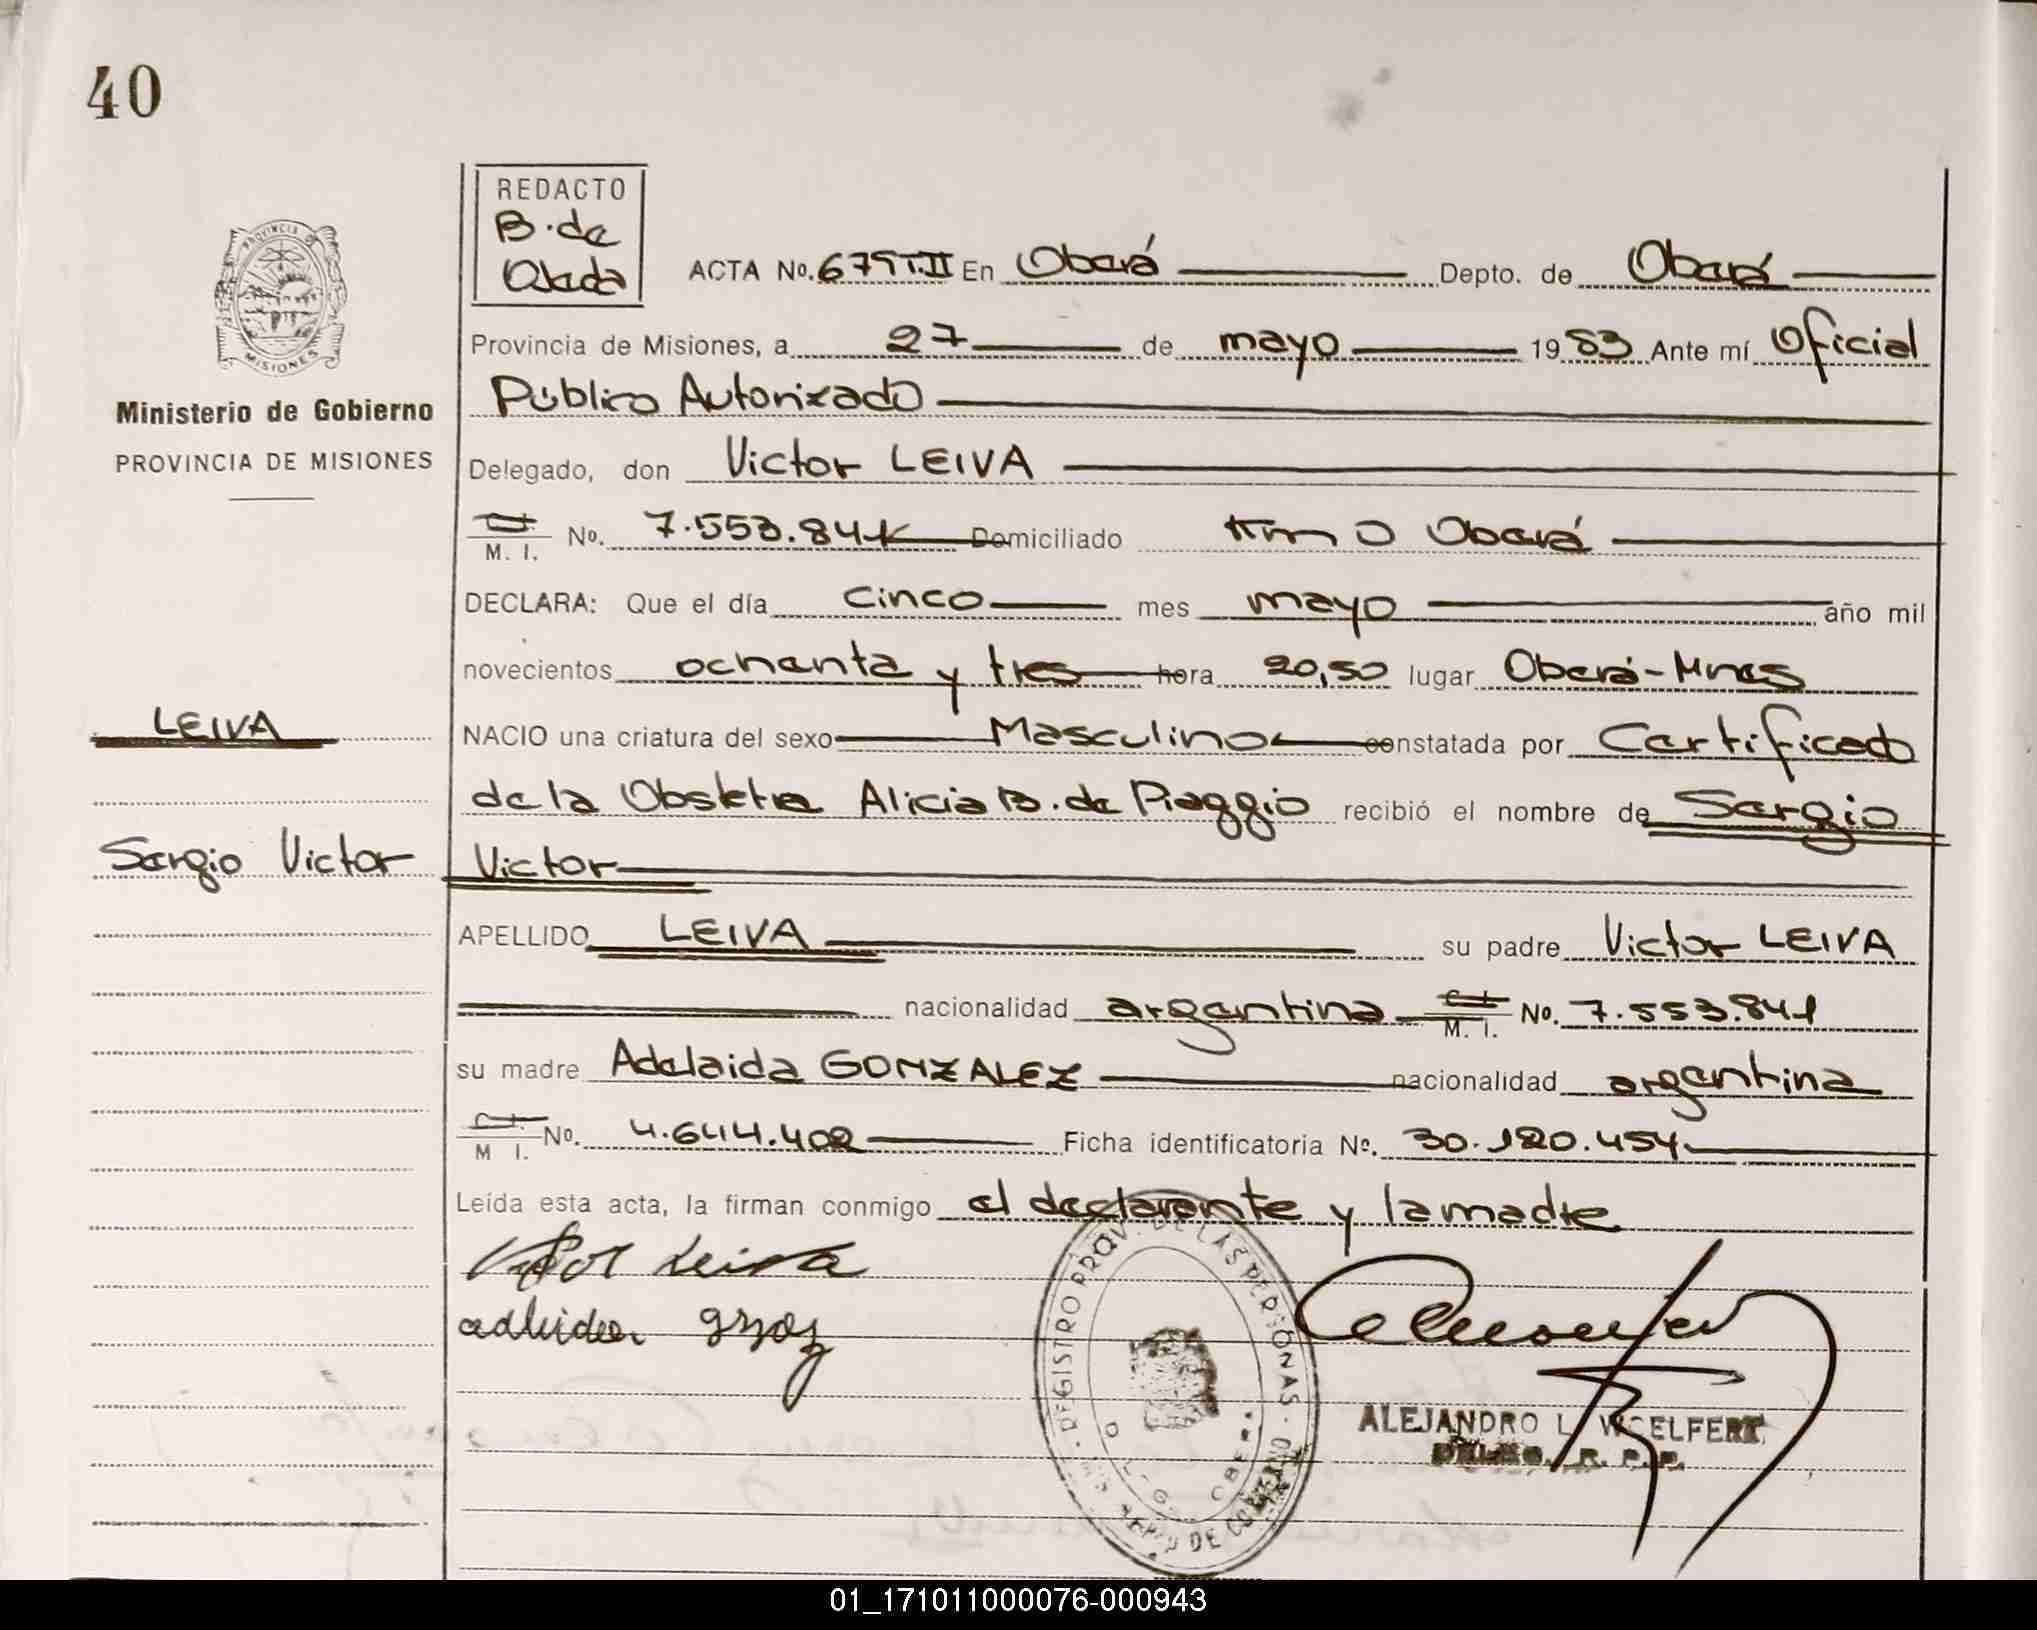 40
REDACTO
B. de
ACTA No. 679 T.II En Oberá Depto. de Oberá
Provincia de Misiones, a 27 de mayo 1983 Ante mí Oficial
Público Autorizado
Ministerio de Gobierno
PROVINCIA DE MISIONES
Delegado, don Victor LEIVA
M. I. No. 7.553.841 Domiciliado Km 0 Oberá
DECLARA: Que el día cinco mes mayo año mil
novecientos ochenta y tres hora 20,50 lugar Oberá-Mnes
LEIVA
NACIO una criatura del sexo Masculino constatada por Certificado
de la Obstetra Alicia B. de Piaggio recibió el nombre de Sergio
Sergio Victor
Victor
APELLIDO LEIVA su padre Victor LEIVA
nacionalidad argentina C. I. M. I. No. 7.553.841
su madre Adelaida GONZALEZ nacionalidad argentina
C. I. M I. No. 4.644.402 Ficha identificatoria No. 30.120.454
Leída esta acta, la firman conmigo el declarante y la madre
Victor Leiva
REGISTRO PROV. DE LAS PERSONAS
OBERA
ALEJANDRO L. WOELFERT
R. P. P.
01_171011000076-000943